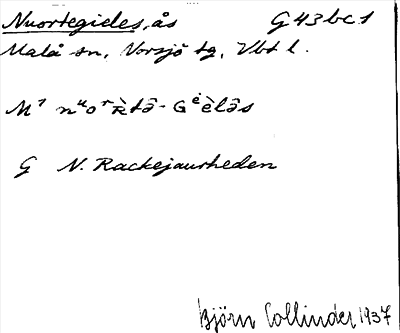 Nuortegieles, ås G 43 b c 1
Malå sn, Norsjö tg, Vbt l.
G N. Rackejaurheden
Björn Collinder 1937